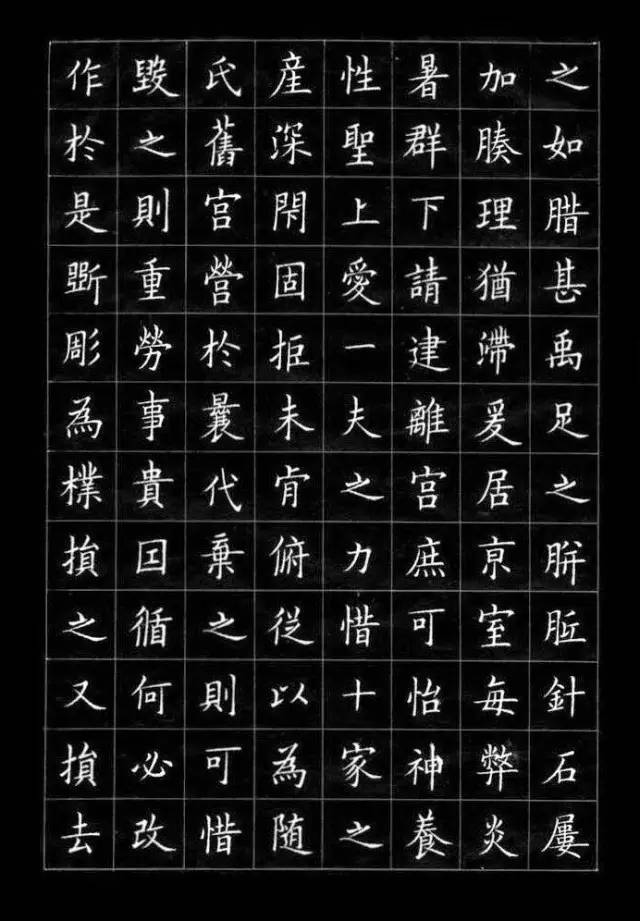 之如腊甚禹足之胼胝針石屢
加腠理猶滯爰居亰室每弊炎
暑群下請建離宫庶可怡神養
性聖上愛一夫之力惜十家之
産深閇固拒未肯俯從以為随
氏舊宫營於曩代棄之則可惜
毀之則重勞事貴因循何必改
作於是斵彫為樸損之又損去